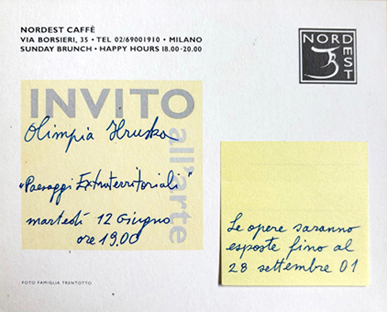 NORDEST CAFFÈ
VIA BORSIERI, 35 • TEL 02/69001910 • MILANO
SUNDAY BRUNCH • HAPPY HOURS 18.00-20.00
NORD
EST
INVITO
all'arte
Olimpia Hruska
"Paesaggi Extraterritoriali"
martedì 12 Giugno
ore 19,00
Le opere saranno
esposte fino al
28 settembre 01
FOTO FAMIGLIA TRENTOTTO